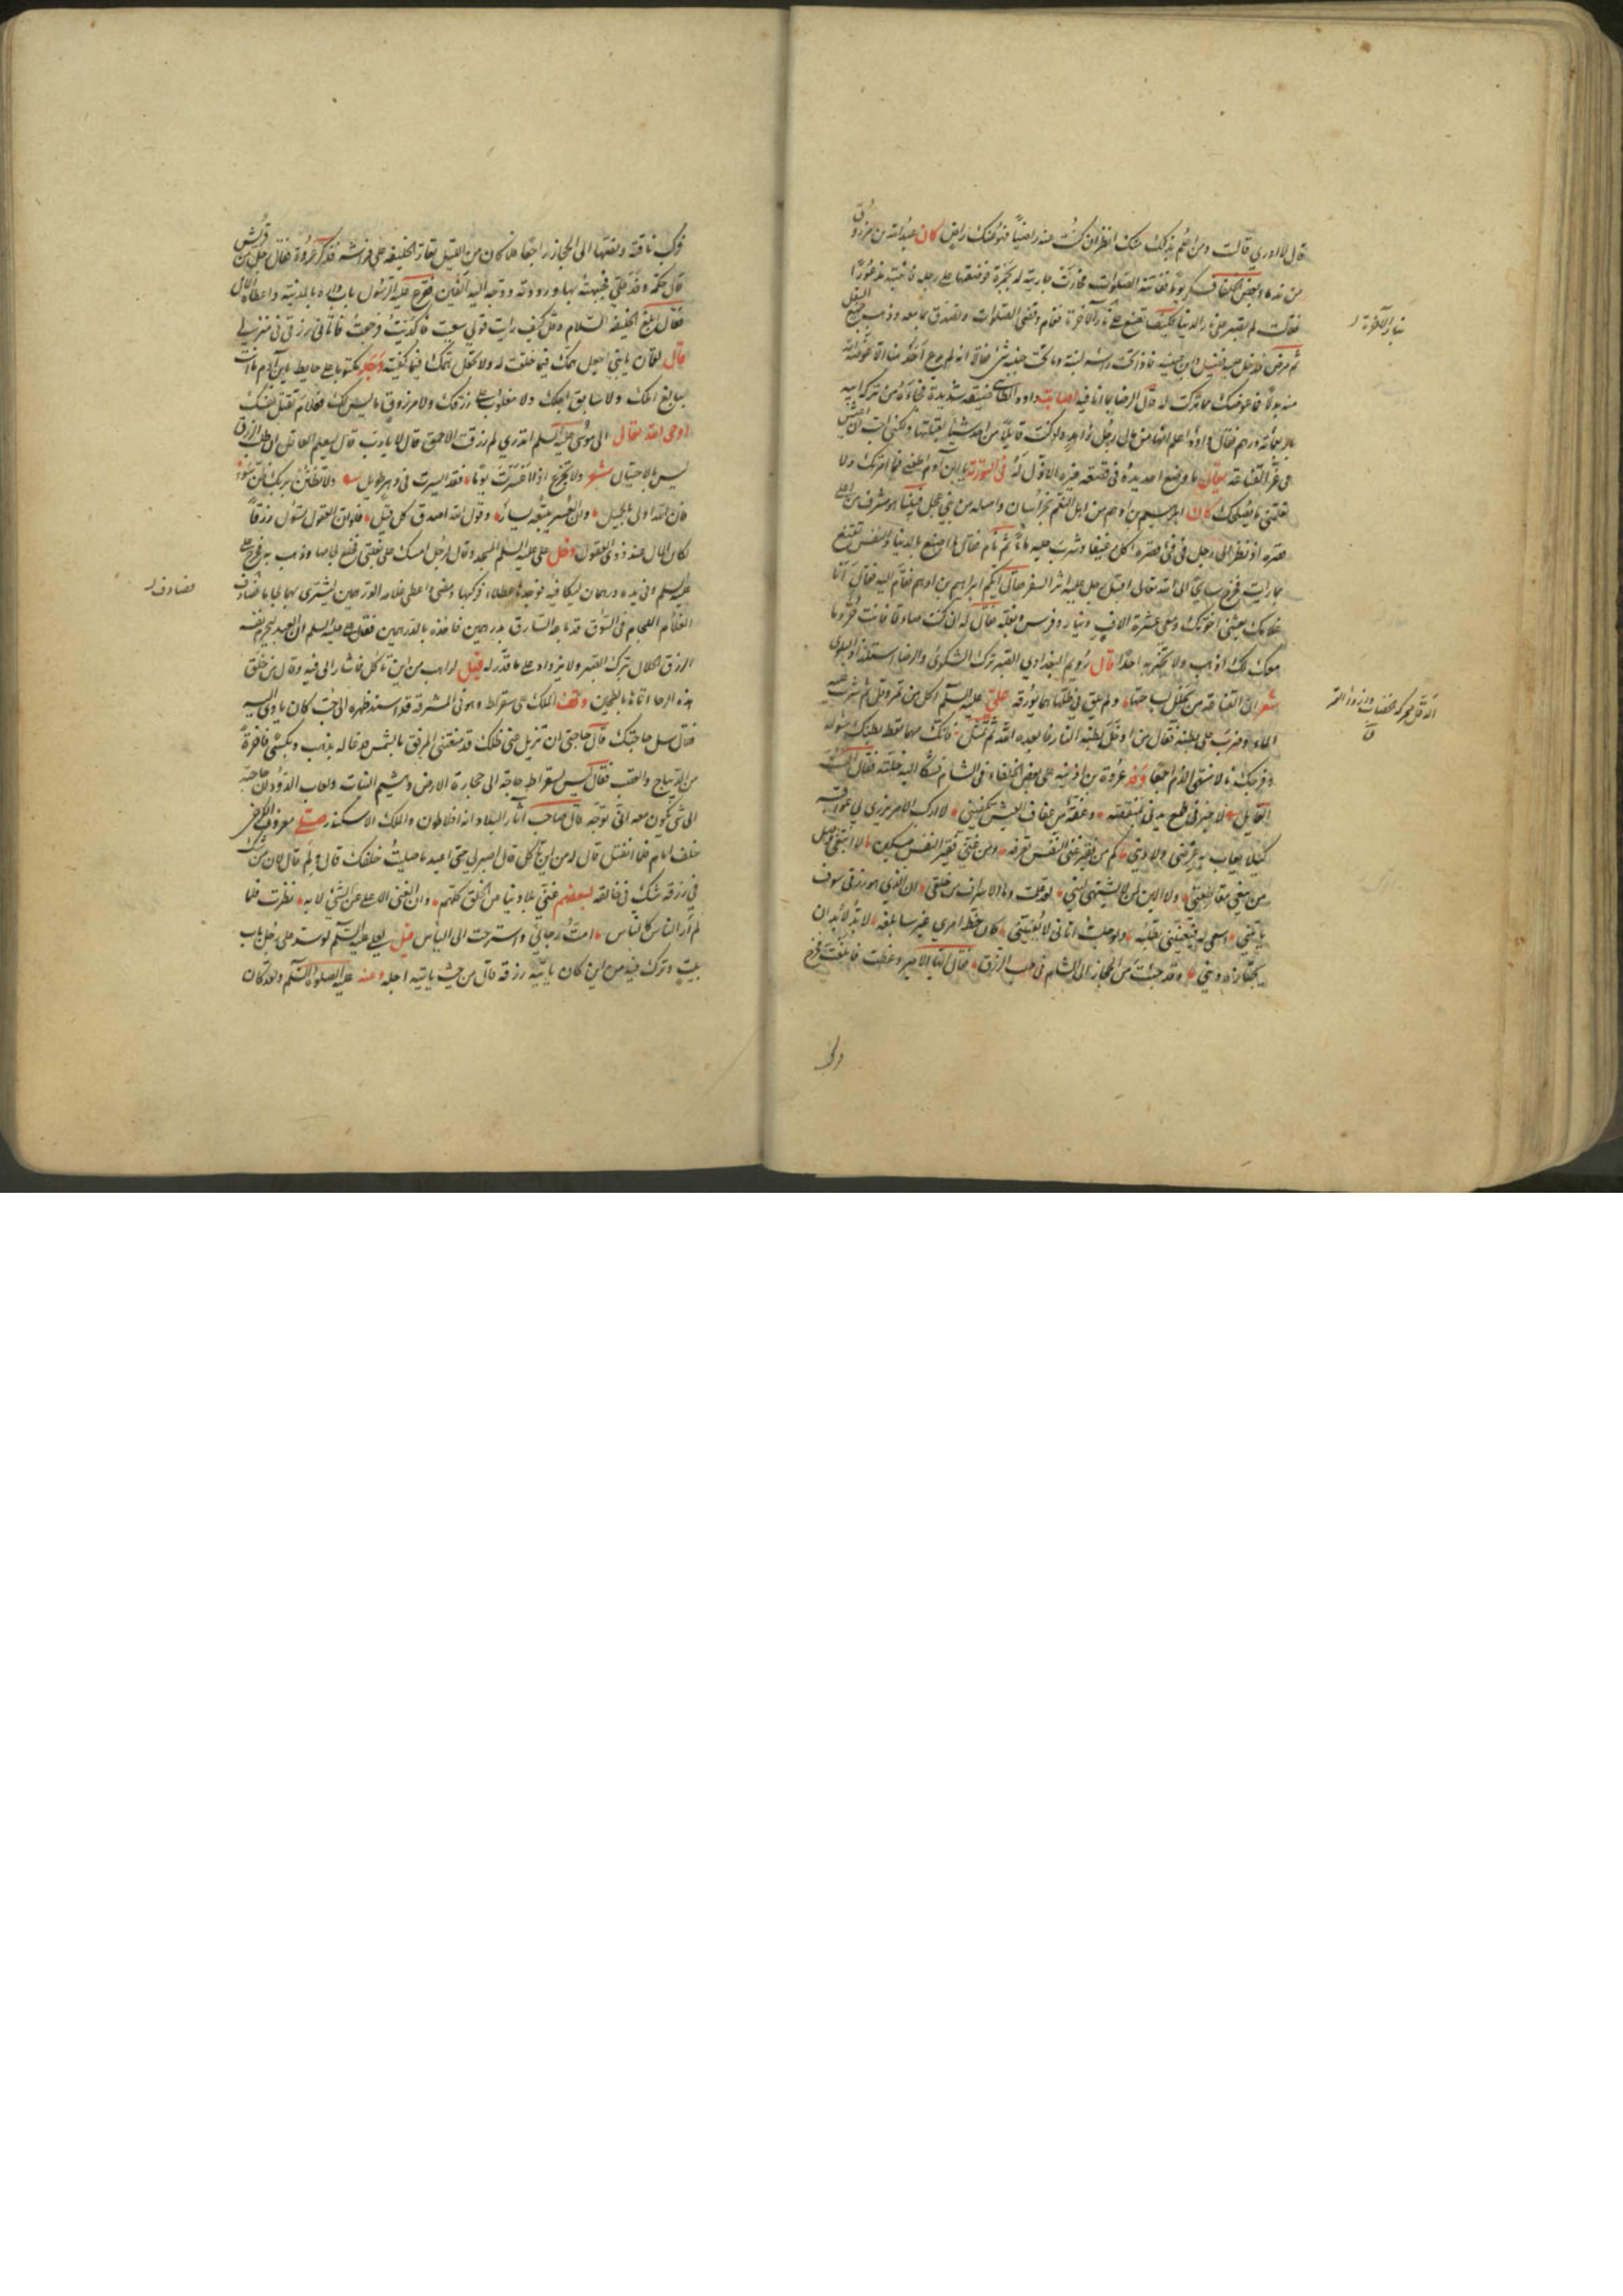 قال لا ادري قالت ومن اعلم بذلك منك انظر ان كنت عنه راضيا فهو عنك راض كان عبد الله بن مرزوق
من ندماء بعض الخلفاء فسكر يوما ففاتته الصلوات فجاءت جارية له بجمرة فوضعتها على رجله فانتبه مذعورا
فقالت لم تصبر على نار الدنيا فكيف تصنع بنار الآخرة فقام وقضى الصلوات وتصدق بما معه وذهب يبيع البقل
ثم مرض فدخل عليه فضيل وابن عيينة فاذا تحت راسه لبنة وما تحت جنبه شئ فقالا انه لم يدع احد شيئا الا عوضه الله
منه بدلا فما عوضك مما تركت له قال الرضا بما انا فيه اصابت داود الطائي ضيقة شديدة فجاءه من تركة ابيه
باربعمائة درهم فقال داود اعلم انها من مال رجل زاهد ولو كنت قابلا من احد شيئا لقبلتها ولكني احب ان اعيش
في عز القناعة يقال ما وضع احد يده في قصعة غيره الا ذل له في التورية يا ابن آدم اطعني فيما امرتك ولا
تعلمني ما يصلحك كان ابراهيم بن ادهم من اهل النعم بخراسان واصله من بني عجل فبينا هو مشرف من اعلى
قصره اذ نظر الى رجل في فئ قصره اكل رغيفا وشرب عليه ماء ثم نام فقال ما اصنع بالدنيا والنفس تقنع
بما رايت فخرج سايحا الى الله تعالى اقبل رجل عليه اثر السفر فقال ايكم ابراهيم بن ادهم فقام اليه فقال انا
غلامك بعثني اخوتك ومعي عشرة الاف دينار وفرس وبغلة فقال له ان كنت صادقا فانت حر وما
معك لك اذهب ولا تخبر به احدا قال رويم البغدادي الصبر ترك الشكوى والرضا استلذاذ البلوى
شعر ان القناعة من يحلل بساحتها ولم يلق في ظلها هما يؤرقه علي عليه السلم اكل من تمر دقل ثم شرب عليه
الماء وضرب على بطنه فقال من ادخل بطنه النار فابعده الله ثم تمثل فانك مهما تعط بطنك سؤله
وفرجك نالا منتهى الذم اجمعا وفد عروة بن اذينة على بعض الخلفاء في الشام فشكا اليه خلته فقال الست
القايل لا خير في طمع يدني لمنقصة وعفة من عفاف العيش تكفيني لا اركب الامر يزري بي عواقبه
كيلا يعاب به عرضي ولا ديني كم من فقير غني النفس تعرفه ومن غني فقير النفس مسكين لا ابتغي وصل
من يبغي مقاطعتي ولا الين لمن لا يشتهي ليني لقد علمت وما الاسراف من خلقي ان الذي هو رزقي سوف
ياتيني اسعى له فيعنيني تطلبه ولو جلست اتاني لا يعنيني كان حظ امرئ غيري سابلغه لا بد لا بد ان
يجتازه دوني وقد جئت من الحجاز الى الشام في طلب الرزق فقال ايها الامير وعظت فابلغت فخرج
فركب
بنار الآخرة
فركب ناقته ونصها الى الحجاز راجعا فلما كان من الليل تعار الخليفة على فراشه فذكر عروة فقال رجل من قريش
قال حكمة ووفد علي فجبهته بها ورددته ووجه اليه الفين فقرع عليه الرسول باب داره بالمدينة واعطاه المال
فقال ابلغ الخليفة السلام وقل كيف رايت قولي سعيت فاكديت ورجعت فاتاني رزقي في منزلي
قال لقمان يا بني اجعل همك فيما خلقت له ولا تجعل همك فيما كفيته وجد مكتوبا على حايط يا ابن آدم ما انت
ببالغ املك ولا سابق اجلك ولا مغلوب على رزقك ولا مرزوق ما ليس لك فعلام تقتل نفسك
اوحى الله تعالى الى موسى عليه السلم اتدري لم رزقت الاحمق قال لا يا رب قال ليعلم العاقل ان طلب الرزق
ليس بالاحتيال شعر ولا تجزع اذا اعسرت يوما فقد ايسرت في دهر طويل ولا تظنن بربك ظن سوء
فان الله اولى بالجميل وان العسر يتبعه يسار وقول الله اصدق كل قيل فلو ان العقول تسوق رزقا
لكان المال عند ذوي العقول دخل علي عليه السلم المسجد وقال لرجل امسك علي بغلتي فخلع لجامها وذهب به فخرج علي
عليه السلم وفي يده درهمان ليكافيه فوجدها عطلاء فركبها ومضى واعطى غلامه الدرهمين ليشتري بهما لجاما فصادف
الغلام اللجام في السوق قد باعه السارق بدرهمين فاخذه بالدرهمين فقال علي عليه السلم ان العبد ليحرم نفسه
الرزق الحلال بترك الصبر ولا يزداد على ما قدر له قيل لراهب من اين تاكل فاشار الى فيه وقال من خلق
هذه الرحا اتاها بالطحين وقف الملك على سقراط وهو في المشرقة قد اسند ظهره الى حب كان ياوي اليه
فقال سل حاجتك قال حاجتي ان تزيل عني ظلك فقد منعتني المرفق بالشمس فدعا له بذهب وبكسى فاخرة
من الديباج والقصب فقال ليس لسقراط حاجة الى حجارة الارض وهشيم النبات ولعاب الدود ان حاجته
الى شئ يكون معه انى توجه قال صاحب آثار البلاد انه افلاطون والملك الاسكندر صلى معروف الكرخي
خلف امام فلما انفتل قال له من اين تاكل قال اصبر لي حتى اعيد ما صليت خلفك قال ولم قال لان من شك
في رزقه شك في خالقه لبعضهم غني بلا دنيا عن الخلق كلهم وان الغنى الاعلى عن الشئ لا به نظرت فلما
لم ار الناس كالناس امت رجائي واسترحت الى الياس قيل لعلي عليه السلم لو سد على رجل باب
بيت وترك فيه من اين كان ياتيه رزقه قال من حيث ياتيه اجله وعنه عليه الصلوة والسلم ولقد كان
فصادف